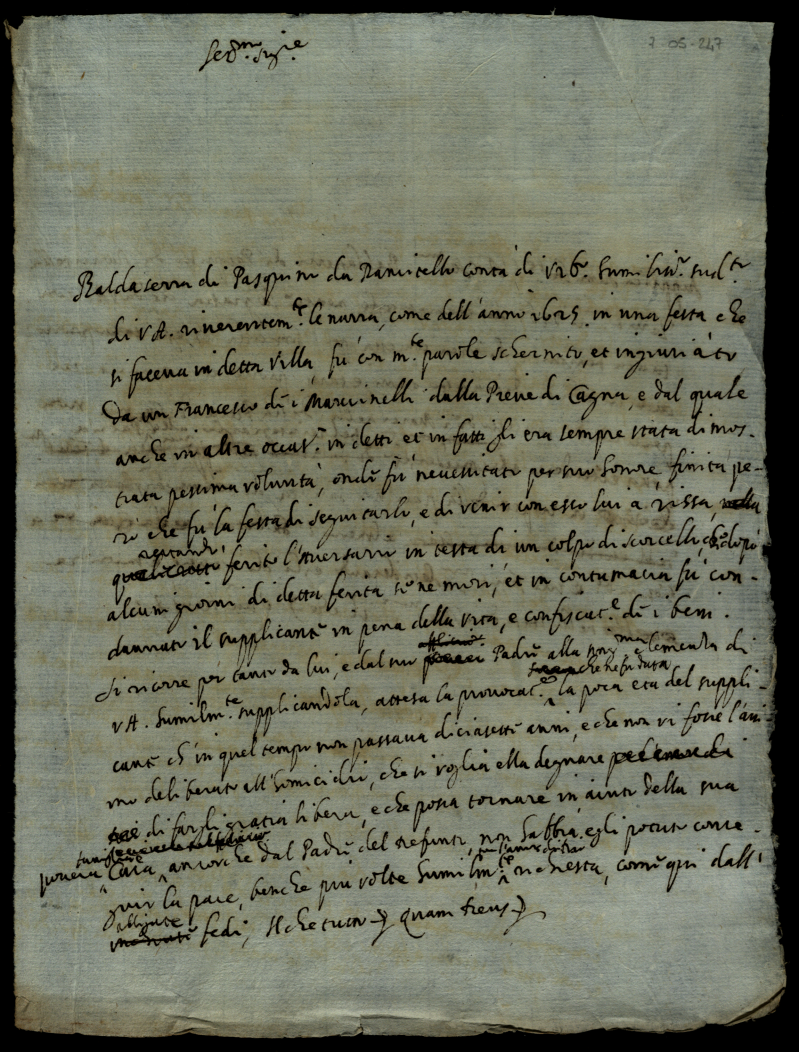 Ser.mo Sig.re
7 05-247
Baldaserra di Pasquino da Rancitello contà di Urb.o humiliss.o sud.to
di V.A. riverentem.te le narra, come dell'anno 1625 in una festa che
si faceva in detta Villa, fù con m.te parole schernito, et ingiuriato
da un Francesco de i Marcinelli dalla Pieve di Cagna, e dal quale
anche in altre occas.ni in detti et in fatti gli era sempre stata dimos-
trata pessima voluntà, onde fù necessitato per suo honore finita pe-
rò che fù la festa di seguitarlo, e di venir con esso lui a rissa,
ferito l'aversario in testa di un colpo di che dopò
alcuni giorni di detta ferita se ne morì, et in contumacia fù con-
dannato il supplicante in pena della vita, e confiscat.e de i beni.
Si ricorre per tanto da lui, e dal suo afflitto Padre alla clemenza di
V.A. humilm.te supplicandola, attesa la provocat.e che ne fu data la poca età del suppli-
cante ch'in quel tempo non passava diciasette anni, e che non vi fosse l'ani-
mo deliberato all'homicidio, che si voglia ella degnare
di fargli gratia libera, e che possa tornare in aiuto della sua
povera Casa, ancorche dal Padre del defunto, non habbia egli potuto conse-
guir la pace, benche più volte humilm.te richiesta, come qui dall'
alligate fedi, Il che tutto quam Deus